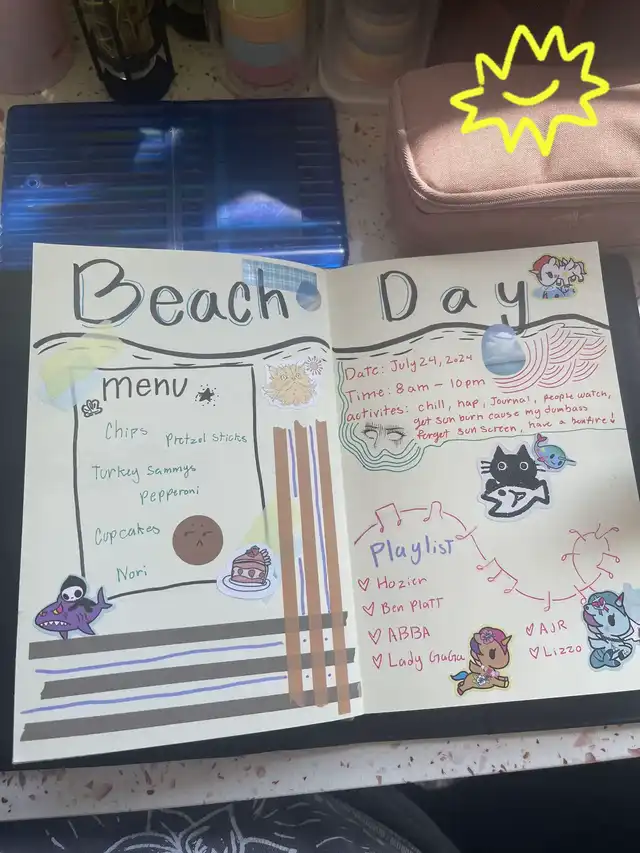 Beach Day
menu
Chips
Pretzel Sticks
Turkey Sammys
Pepperoni
Cupcakes
Nori
Date: July 24, 2024
Time: 8am - 10pm
activites: chill, nap, Journal, people watch,
get sun burn cause my dumbass
forget sun screen, have a bonfire!
Playlist
♡ Hozier
♡ Ben Platt
♡ ABBA
♡ Lady GaGa
♡ AJR
♡ Lizzo